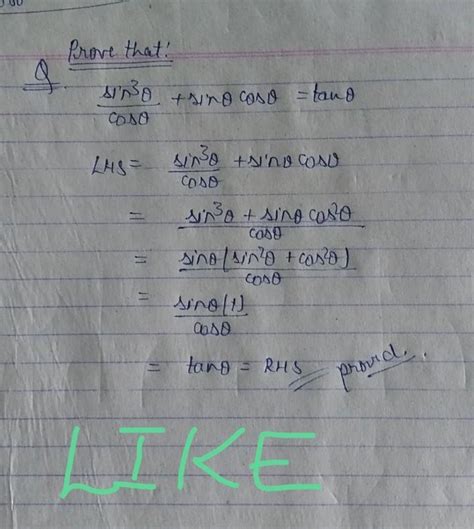 Prove that!
Q. sin³θ/cosθ + sinθ cosθ = tanθ
LHS = sin³θ/cosθ + sinθ cosθ
= sin³θ + sinθ cos²θ/cosθ
= sinθ(sin²θ + cos²θ)/cosθ
= sinθ(1)/cosθ
= tanθ = RHS provd.
LIKE